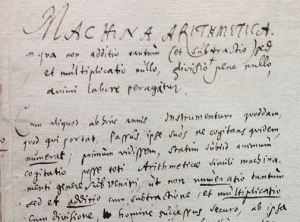 MACHINA ARITHMETICA.
in qua non additio tantum et subtractio sed
et multiplicatio nullo, divisio pene nullo,
animi labore peragatur.
Cum aliquot abhinc annis Instrumentum quoddam,
quod qui portat, passus ipse suos ne cogitans quidem
numerat, primum vidissem, statim subiit animum
cogitatio posse toti Arithmeticae simili machina-
menti genere subveniri, ut non numeratio tantum
sed et additio cum subtractione, et multiplicatio
cum divisione homine successus securo, ab ipsa